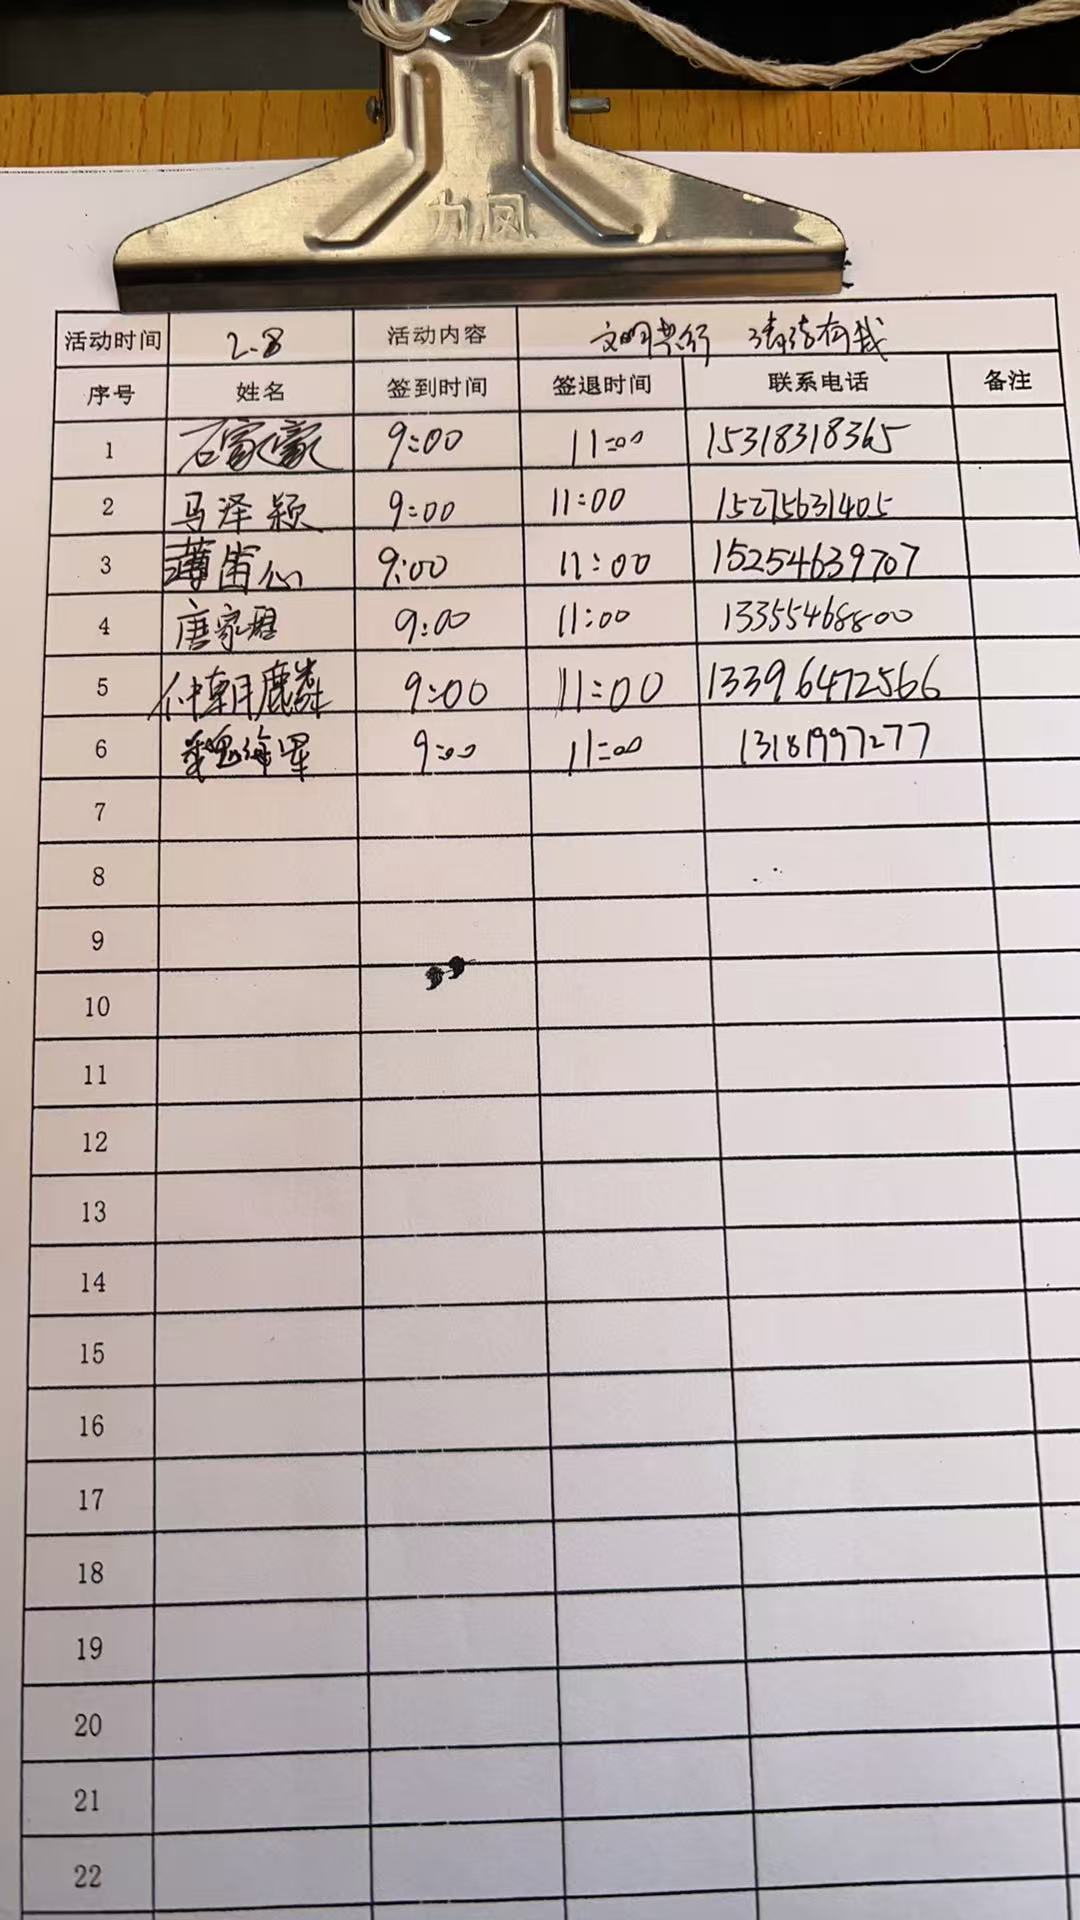 力风
活动时间 2-8 活动内容 文明共行 清洁有我
序号 姓名 签到时间 签退时间 联系电话 备注
1 石家豪 9:00 11:00 15318318365
2 马泽颖 9:00 11:00 15275631405
3 薄笛心 9:00 11:00 15254639707
4 唐家珺 9:00 11:00 13355468800
5 仲朝麟 9:00 11:00 13396472566
6 9:00 11:00 13181997277
7
8
9
10
11
12
13
14
15
16
17
18
19
20
21
22